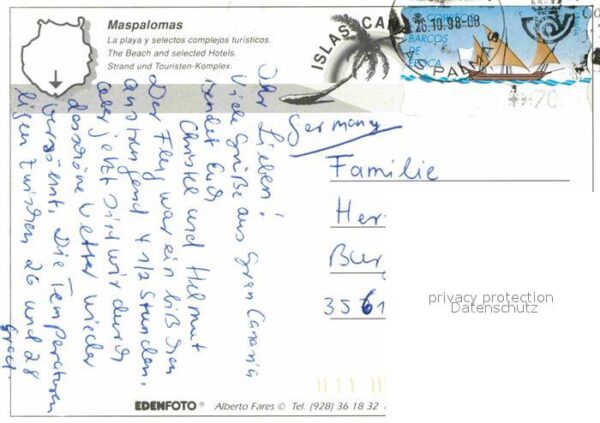 Maspalomas
La playa y selectos complejos turísticos.
The Beach and selected Hotels.
Strand und Touristen-Komplex.
ISLAS CAN
28.10.98-08
LAS PALMAS
BARCOS
DE
EPOCA
Ihr Lieben!
Viele Grüße aus Gran Canaria
sendet Euch
Christel und Helmut
Der Flug war ein bißchen
anstrengend 4 1/2 Stunden.
aber jetzt sind wir durch
das schöne Wetter wieder
versöhnt. Die Temperaturen
liegen zwischen 26 und 28
Grad.
Germany
Familie
Her
Bur
3561
privacy protection
Datenschutz
EDENFOTO® Alberto Fares © Tel. (928) 36 18 32